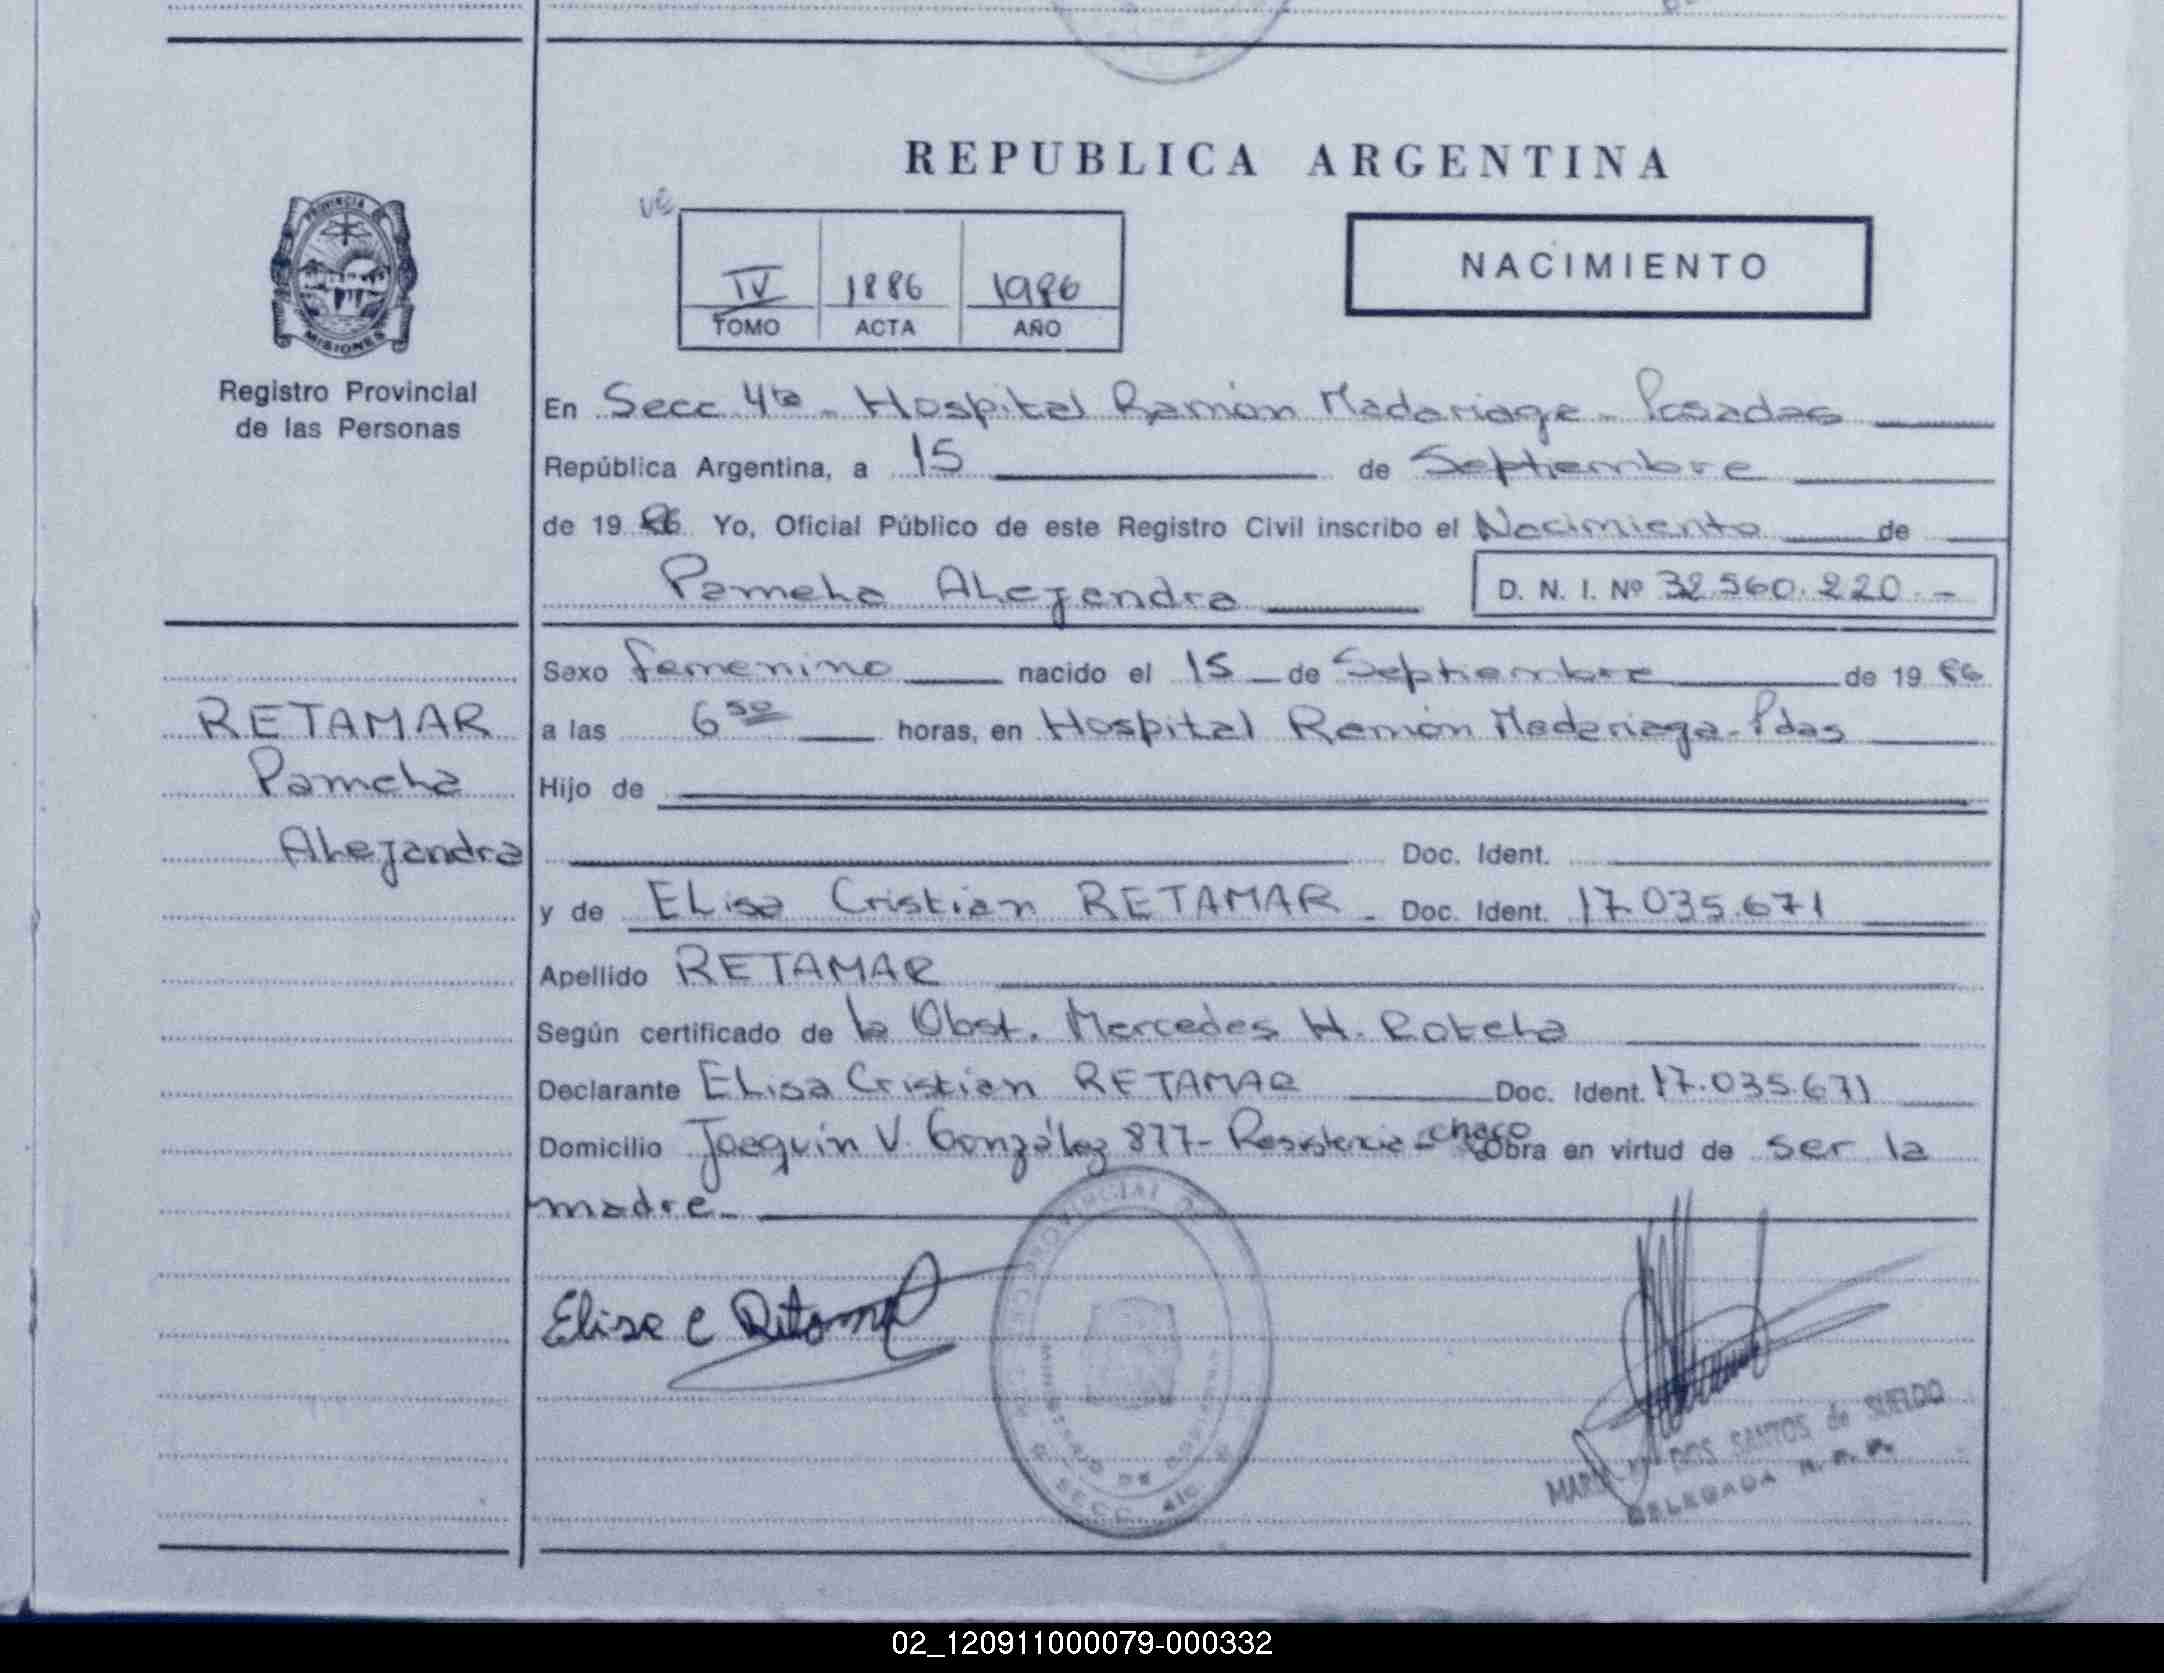 REPUBLICA ARGENTINA
PROVINCIA DE
MISIONES
Registro Provincial
de las Personas
VE
IV 1886 1986
TOMO ACTA AÑO
NACIMIENTO
En Secc 4ta - Hospital Ramón Madariaga - Posadas
República Argentina, a 15 de Septiembre
de 1986 Yo, Oficial Público de este Registro Civil inscribo el Nacimiento de
Pamela Alejandra D. N. I. Nº 32.560.220.-
Sexo femenino nacido el 15 de Septiembre de 1986
a las 6 50 horas, en Hospital Ramón Madariaga - Pdas
Hijo de
Doc. Ident.
y de ELisa Cristian RETAMAR - Doc. Ident. 17.035.671
Apellido RETAMAR
Según certificado de la Obst. Mercedes H. Rotela
Declarante ELisa Cristian RETAMAR Doc. Ident. 17.035.671
Domicilio Joaquín V. González 877 - Resistencia - chaco Obra en virtud de ser la
madre.-
RETAMAR
Pamela
Alejandra
Elisa C Retamar
PROVINCIAL DE
SECC. 4ta
DOS SANTOS de SUELDO
DELEGADA R. P. P.
02_120911000079-000332